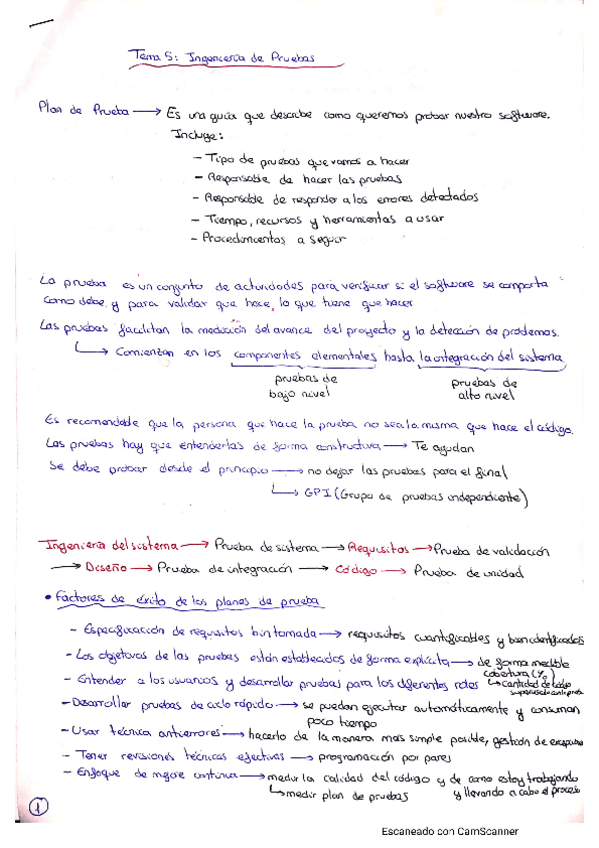 Tema 5: Ingeniería de Pruebas
Plan de Prueba → Es una guía que describe como queremos probar nuestro software.
Incluye:
- Tipo de pruebas que vamos a hacer
- Responsable de hacer las pruebas
- Responsable de responder a los errores detectados
- Tiempo, recursos y herramientas a usar
- Procedimientos a seguir
La prueba es un conjunto de actividades para verificar si el software se comporta
como debe y para validar que hace lo que tiene que hacer
Las pruebas facilitan la medición del avance del proyecto y la detección de problemas.
→ Comienzan en los componentes elementales hasta la integración del sistema
pruebas de bajo nivel
pruebas de alto nivel
Es recomendable que la persona que hace la prueba no sea la misma que hace el código.
Las pruebas hay que entenderlas de forma constructiva → Te ayudan
Se debe probar desde el principio → no dejar las pruebas para el final
→ GPI (Grupo de pruebas independiente)
Ingeniería del sistema → Prueba de sistema → Requisitos → Prueba de validación
→ Diseño → Prueba de integración → Código → Prueba de unidad
• Factores de éxito de los planes de prueba
- Especificación de requisitos bien tomada → requisitos cuantificables y bien identificados
- Los objetivos de las pruebas están establecidos de forma explícita → de forma medible
cobertura (%)
- Entender a los usuarios y desarrollar pruebas para los diferentes roles
→ cantidad de código
- Desarrollar pruebas de ciclo rápido → se puedan ejecutar automáticamente y consuman
poco tiempo
- Usar técnica antierrores → hacerlo de la manera más simple posible, gestión de
- Tener revisiones técnicas efectivas → programación por pares
- Enfoque de mejora continua → medir la calidad del código y de como estoy trabajando
y llevando a cabo el proceso
→ medir plan de pruebas
1
Escaneado con CamScanner